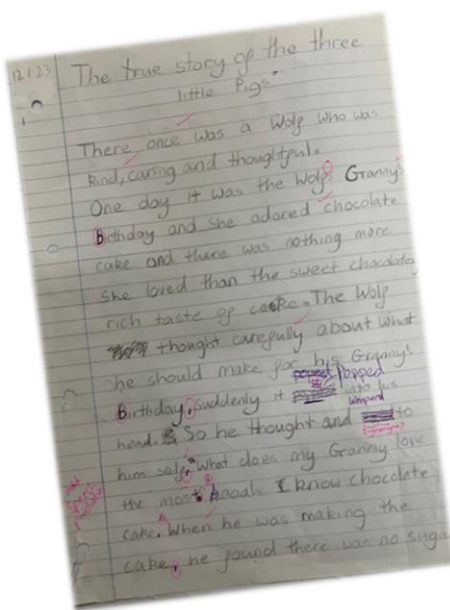 12.1.23
The true story of the three
little Pigs.
There once was a Wolf who was
kind, caring and thoughtful.
One day it was the Wolfs Granny's
Birthday and she adored chocolate
cake and there was nothing more
she loved than the sweet chocolate
rich taste of cake. The Wolf
thought carefully about what
he should make for his Granny's
Popped
Birthday, suddenly it into his
head. So he thought and to
him self, "What does my Granny love
the most? Aaaah I know chocolate
cake." When he was making the
cake, he found there was no suga